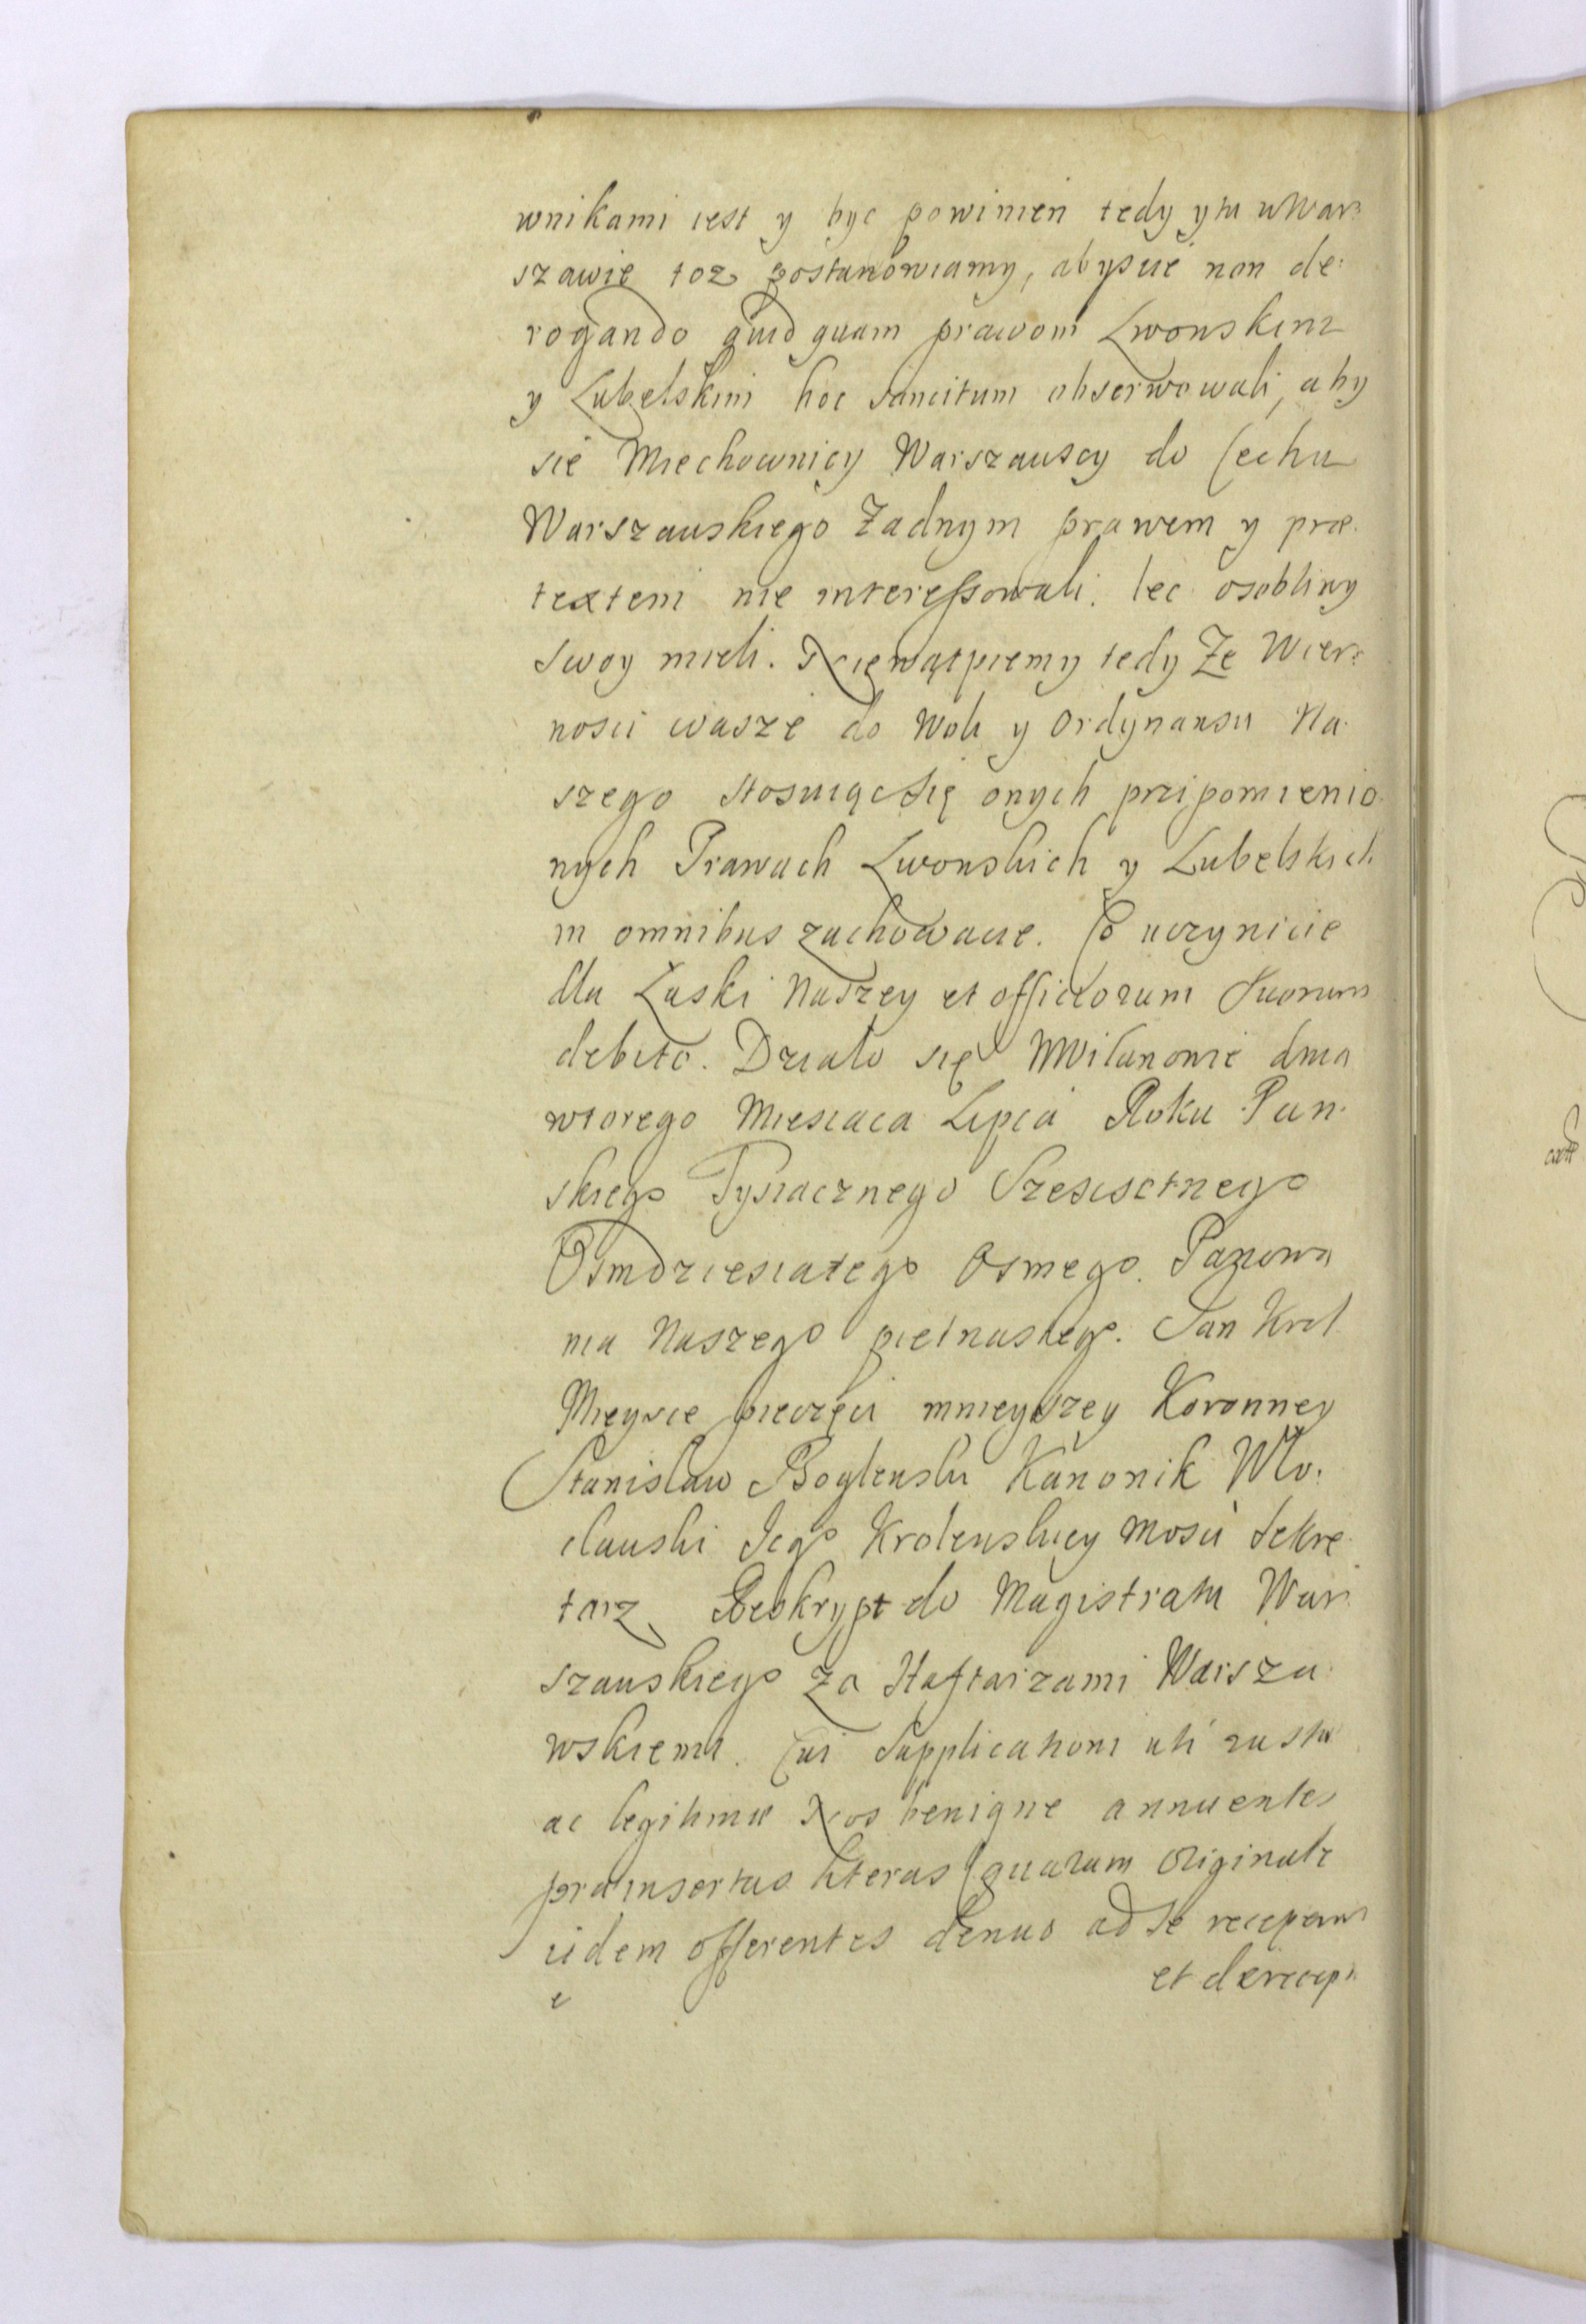 wnikami iest y byc powinien tedy y tu w War:
szawie toz postanowiamy, abyscie non de:
rogando quid quam prawom Lwowskim
y Lubelskim hoc sancitum obserwowali, aby
sie Miechownicy Warszawscy do Cechu
Warszawskiego Żadnym prawem y præ.
textem nie interessowali. lec osobliwy
swoy mieli. Niewątpiemy tedy Że Wier:
nosci wasze do woli y Ordynansu Na:
szego stosuiąc się onych przipomienio:
nych Prawach Lwowskich y Lubelskich
in omnibus zachowacie. Co uczynicie
dla Łaski Naszey et officiorum Suorum
debito. Działo się w Wilanowie dnia
wtorego Miesiaca Lipca Roku Pan:
skiego Tysiacznego Szescsetnego
Osmdziesiatego Osmego. Panowa
nia Naszego pietnastego. Jan Krol
Mieysce pieczęci mnieyszey Koronney
Stanislaw Kanonik Wło:
clawski Jego Krolewskiey Mosci Sekre:
tarz. Reskrypt do Magistratu War:
szawskiego za Haftarzami Warsza:
wskiemi. Cui Supplicationi uti iustæ
ac legitimæ Nos benigne annuentes
præinsertas literas (quarum Originale
iidem offerentes denuo ad se receperunt
et de recep: